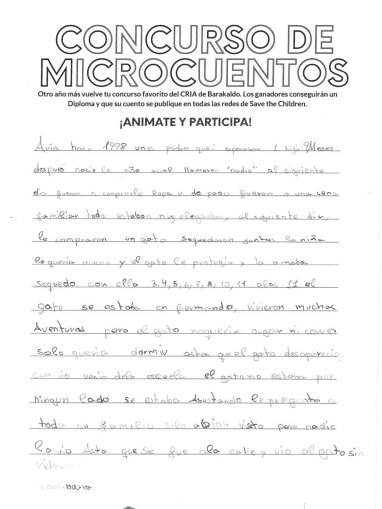 CONCURSO DE
MICROCUENTOS
Otro año más vuelve tu concurso favorito del CRIA de Barakaldo. Los ganadores conseguirán un
Diploma y que su cuento se publique en todas las redes de Save the Children.
¡ANIMATE Y PARTICIPA!
Avia hace 1998 unos padres que esperaban 1 hijo. Meses
despues nasio la niña la cual llamaron "nadia" al siguiente
dia fueron a comprarle Ropa y de paso fueron a una cena
familiar todos estaban muy elegantes, al siguiente dia,
le compraron un gato sequedaron juntos la niña
lo queria mucho y el gato le protegia y la amaba
sequedo con ella 3, 4, 5, 6, 7, 8, 10, 11 años 11 el
gato se estaba enfermando, vivieron muchas
Aventuras pero el gato noqueria jugar ni comer
solo queria dormir asta que el gato desaparecio
cuando venia dela escuela el gato no estaba por
ningun lado se estaba Asustando le pregunto a
toda su familia si lo abian visto pero nadie
lo vio Asta que se fue ala calle y vio al gato sin
vida...